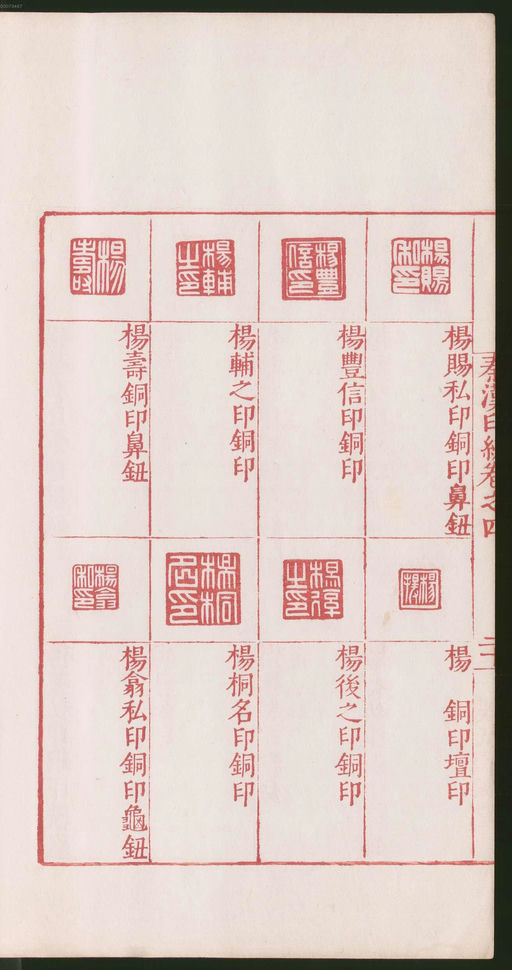 秦漢印統卷之四
二十
楊賜私印
楊賜私印銅印鼻鈕
楊豐信印
楊豐信印銅印
楊輔之印
楊輔之印銅印
楊壽
楊壽銅印鼻鈕
楊
楊　銅印壇印
楊後之印
楊後之印銅印
楊桐名印
楊桐名印銅印
楊翕私印
楊翕私印銅印龜鈕